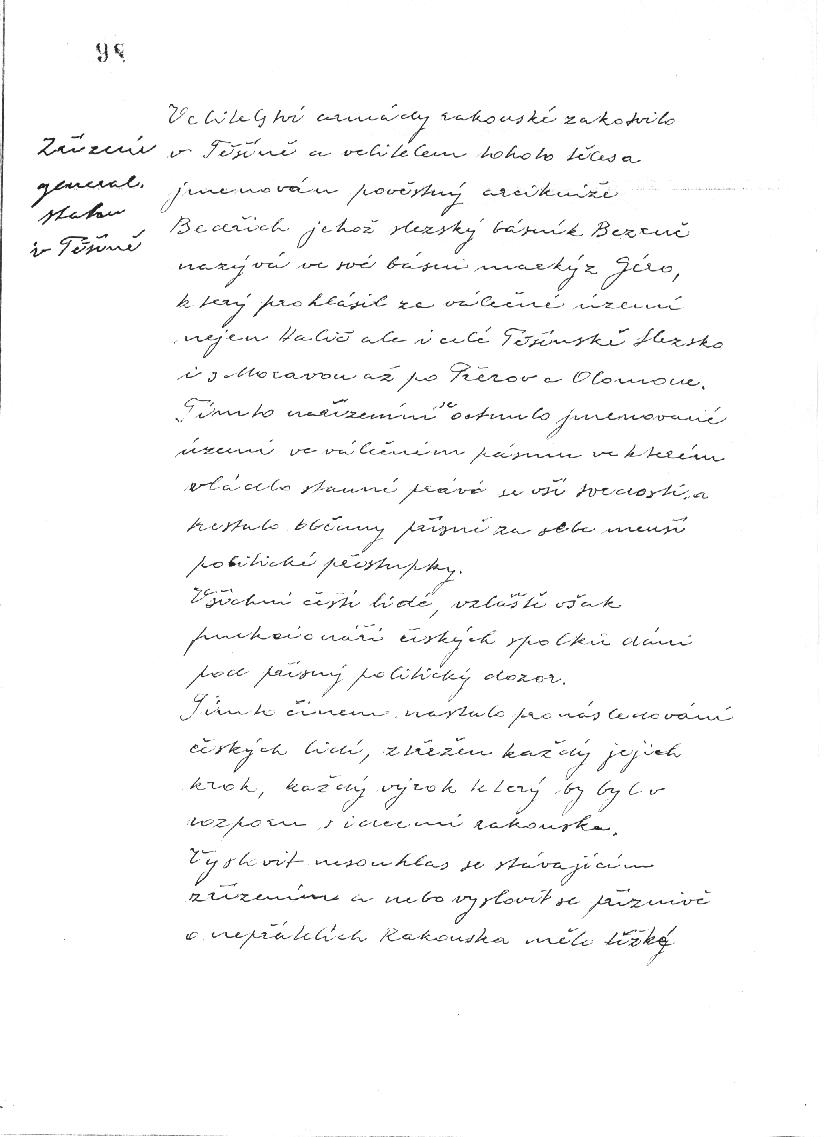 98
Zřízení
general.
stabu
v Těšíně
Velitelství armády rakouské zakotvilo
v Těšíně a velitelem tohoto tělesa
jmenován pověstný arcikníže
Bedřich jehož slezský básník Bezruč
nazývá ve své básni markýz Géro,
který prohlásil za válečné území
nejen Halič ale i celé Těšínské Slezsko
i s Moravou až po Přerov a Olomouc.
Tímto nařízením se octnulo jmenované
území ve válečném pásmu ve kterém
vládlo stanné právo se vší tvrdostí, a
trestalo občany přísně za sebe menší
politické přestupky.
Všichni čeští lidé, vzláště však
funkcionáři českých spolků dáni
pod přísný politický dozor.
Tímto činem nastalo pronásledování
českých lidí, střežen každý jejich
krok, každý výrok který by byl v
rozporu s ideemi rakouska.
Vyslovit nesouhlas se stávajícím
zřízením a nebo vyslovit se příznivě
o nepřátelích Rakouska mělo těžký